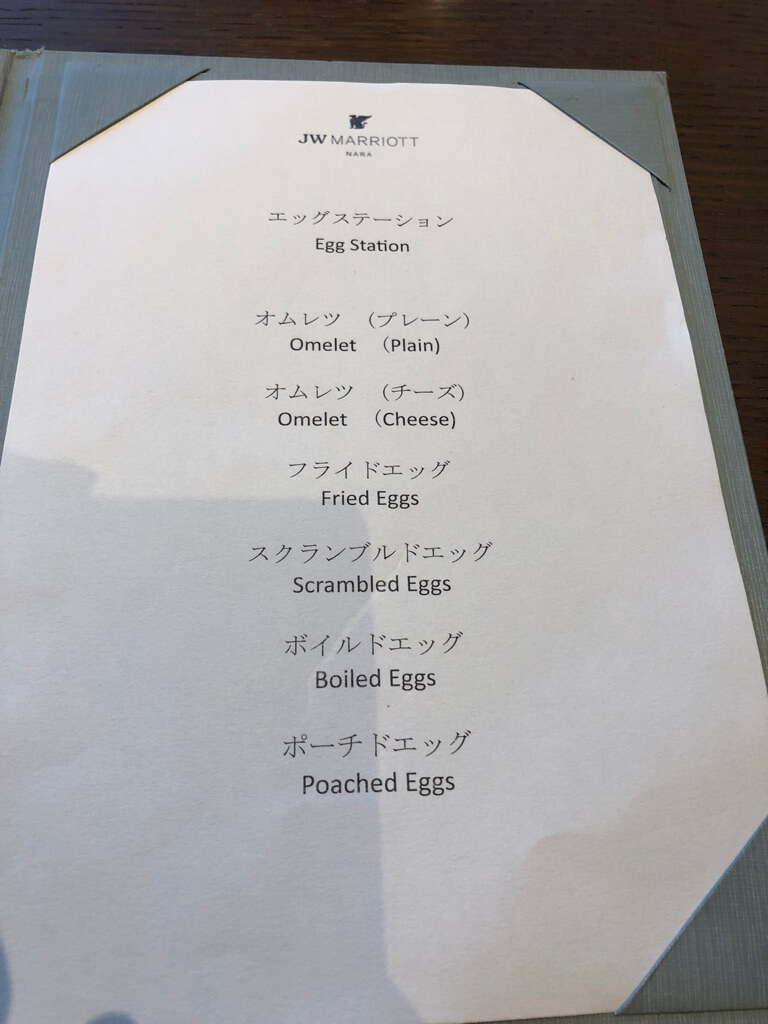 JW MARRIOTT
NARA
エッグステーション
Egg Station
オムレツ （プレーン）
Omelet （Plain)
オムレツ （チーズ）
Omelet （Cheese)
フライドエッグ
Fried Eggs
スクランブルドエッグ
Scrambled Eggs
ボイルドエッグ
Boiled Eggs
ポーチドエッグ
Poached Eggs